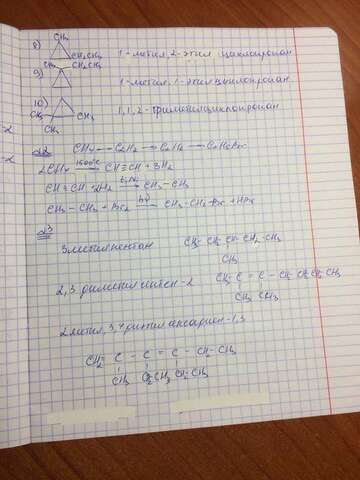 8) CH3
CH2CH3
1-метил, 2-этил циклопропан
9) CH3 CH2CH3
1-метил, 1-этилциклопропан
10)
CH3 CH3
CH3
1,1,2-триметилциклопропан
CH4 → C2H2 → C2H6 → C2H5Br
2CH4 1500°C → CH≡CH + 3H2
CH≡CH + 2H2 t, Ni → CH3-CH3
CH3-CH3 + Br2 hν → CH3-CH2-Br + HBr
3метилпентан CH3-CH2-CH-CH2-CH3
CH3
2,3 диметил -2
CH3 CH3
2метил, 3,4 -1,3
CH2= C - C = C - CH2-CH3
CH3 CH2CH3 CH2-CH3